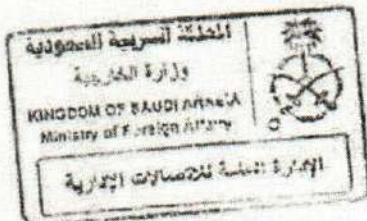 المملكة العربية السعودية
وزارة الخارجية
KINGDOM OF SAUDI ARABIA
Ministry of Foreign Affairs
الإدارة العامة للاتصالات الإدارية